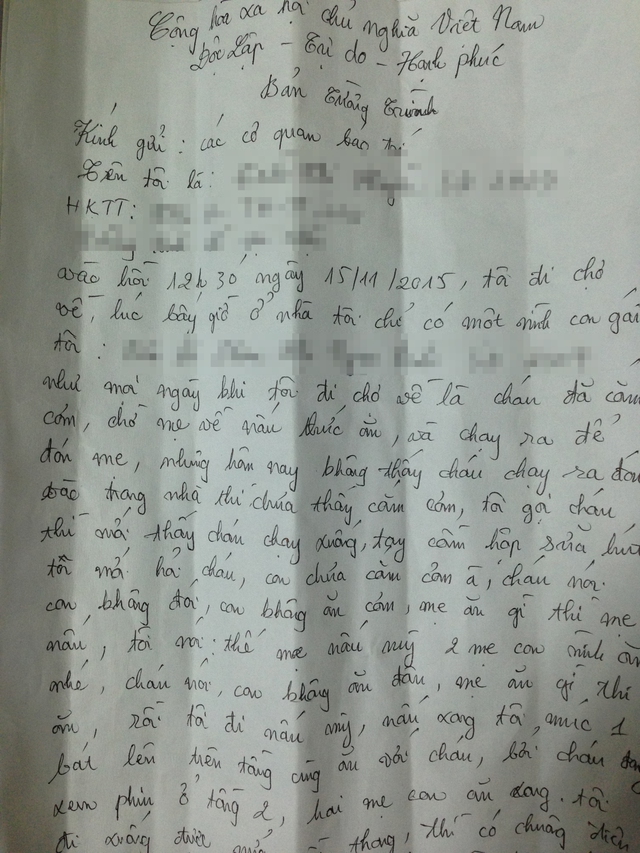 Cộng hòa xã hội chủ nghĩa Việt Nam
Độc lập - Tự do - Hạnh phúc
Bản Tường Trình
Kính gửi : các cơ quan báo trí
Tên tôi là:
HKTT:
vào hồi 12h 30 ngày 15/11/2015, tôi đi chợ
về, lúc bấy giờ ở nhà tôi chỉ có một mình con gái
tôi :
như mọi ngày khi tôi đi chợ về là cháu đã cắm
cơm, chờ mẹ về nấu thức ăn, và chạy ra để
đón mẹ, nhưng hôm nay không thấy cháu chạy ra đón
vào trong nhà thì chưa thấy cắm cơm, tôi gọi cháu
thì mới thấy cháu chạy xuống, tay cầm hộp sữa hút
tôi mới hỏi cháu, con chưa cắm cơm à, cháu nói.
con không đói, con không ăn cơm, mẹ ăn gì thì mẹ
nấu, tôi nói: thế mẹ nấu mỳ 2 mẹ con mình ăn
nhé, cháu nói, con không ăn đâu, mẹ ăn gì thì
ăn, rồi tôi đi nấu mỳ, nấu xong tôi múc 1
bát lên trên tầng cùng ăn với cháu, bởi cháu đang
xem phim ở tầng 2, hai mẹ con ăn xong. tôi
đi xuống dưới thang, thì có chuông điện